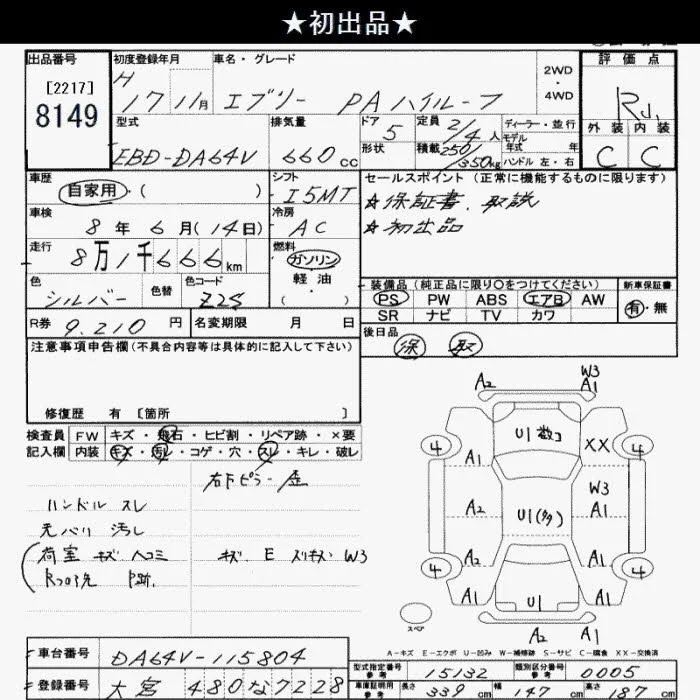 ★初出品★
出品番号 初度登録年月 車名・グレード 2WD 4WD 評価点
[2217]
8149
H 17 11月 エブリー PAハイルーフ
型式 排気量 ドア 5 定員 2/4人 ディーラー・並行
モデル 年式 年
外装 内装
EBD-DA64V 660cc 形状 積載 250/350kg ハンドル 左・右 C C
車歴 シフト セールスポイント(正常に機能するものに限ります)
自家用・( ) I5MT ★保証書、取説
車検 冷房 ★初出品
8年 6月(14日) AC
走行 8万1千666km 燃料 ガソリン
軽油
装備品(純正品に限り○をつけてください) 新車保証書
色 色替 色コード
シルバー Z2S ( )
PS PW ABS エアB AW 有・無
SR ナビ TV カワ
R券 9,210円 名変期限 月 日 後日品
注意事項申告欄(不具合内容等は具体的に記入して下さい) 保 取
修復歴 有 [箇所 ]
検査員 FW キズ・飛石・ヒビ割・リペア跡・×要
記入欄 内装 キズ・汚レ・コゲ・穴・スレ・キレ・破レ
右下ピラー歪
ハンドル スレ
天バリ 汚し
荷室 キズ ヘコミ キズ E スリキズ W3
A2 W3 A1
4 U1 数コ XX 4
A1
W3
A2 U1(多) A1
A2 A1
4 4
A1 U1 A1
A2 A1
スペア
A-キズ E-エクボ U-凹み W-補修跡 S-サビ C-腐食 XX-交換済
車台番号 DA64V-115804
型式指定番号 参考 15132 類別区分番号 参考 0005
登録番号 大宮 480な7228
車庫証明用 参考 長さ 339cm 幅 147cm 高さ 187cm